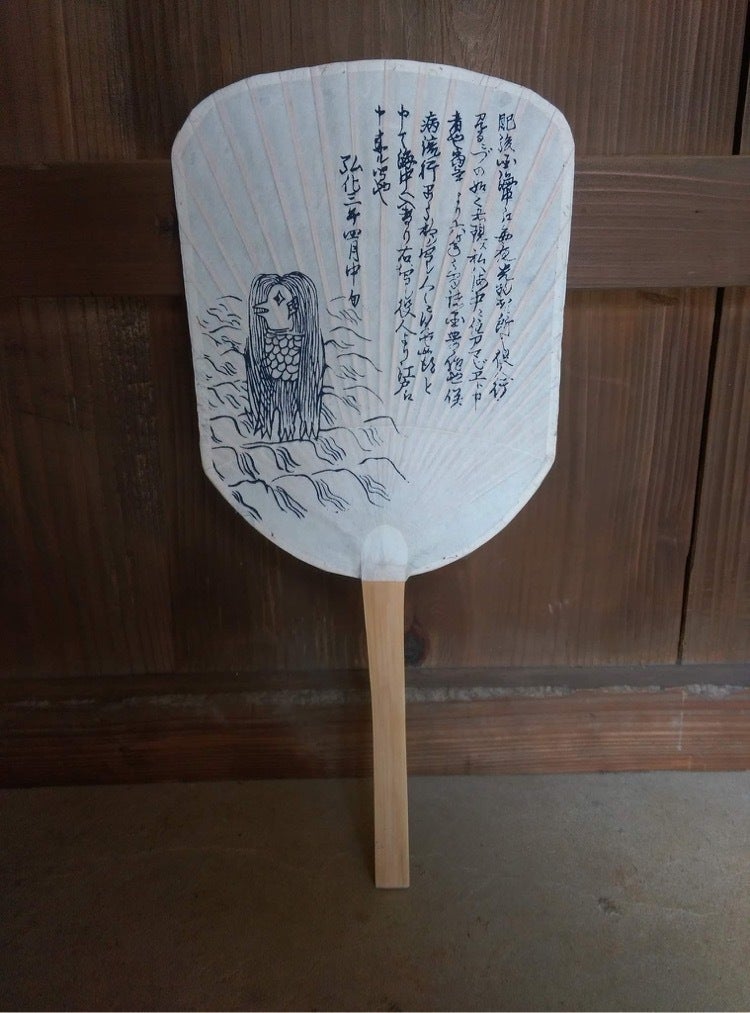 肥後国海中江毎夜光物出ル所之役人行
見るニづの如く者現ス私ハ海中ニ住アマビヱト申
者也当年より六ヶ年之間諸国豊作也併
病流行早々私ヲ写シ人々ニ見せ候得と
申て海中へ入けり右写シ役人より江戸江
申来ル写也
弘化三年四月中旬